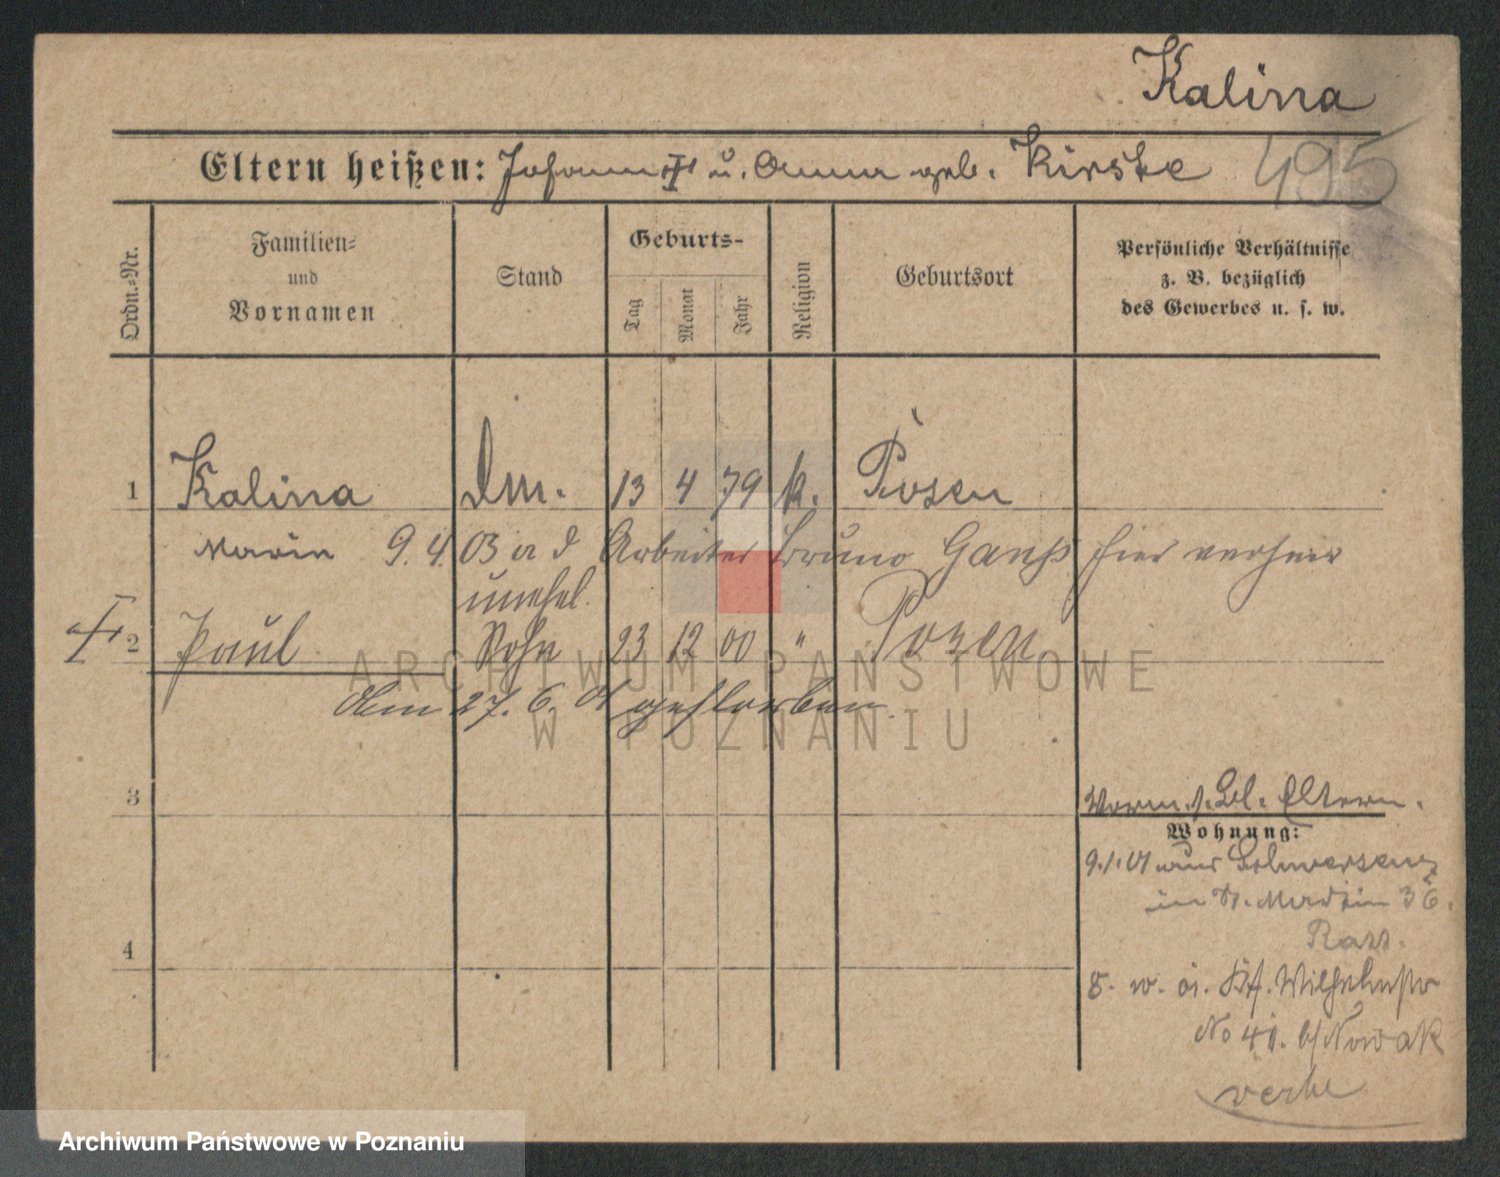 Kalina
Eltern heißen: Johann u. Anna geb. Kirste 495
Ordn.-Nr.
Familien-
und
Vornamen
Stand
Geburts-
Tag
Monat
Jahr
Religion
Geburtsort
Persönliche Verhältnisse
z. B. bezüglich
des Gewerbes u. s. w.
1 Kalina Dm. 13 4 79 k. Posen
Marie 9.4.03 a d Arbeiter Bruno hier verheir
unehel.
2 Paul Sohn 23 12 00 " Posen
Am 27. 6. 01 gestorben.
3
Vorm. s. Bl. Eltern.
Wohnung:
9.1.01 aus Schwersenz
in St. Martin 36.
4
8. Wilhelmstr
No 41. b/Nowak
ARCHIWUM PAŃSTWOWE
W POZNANIU
Archiwum Państwowe w Poznaniu